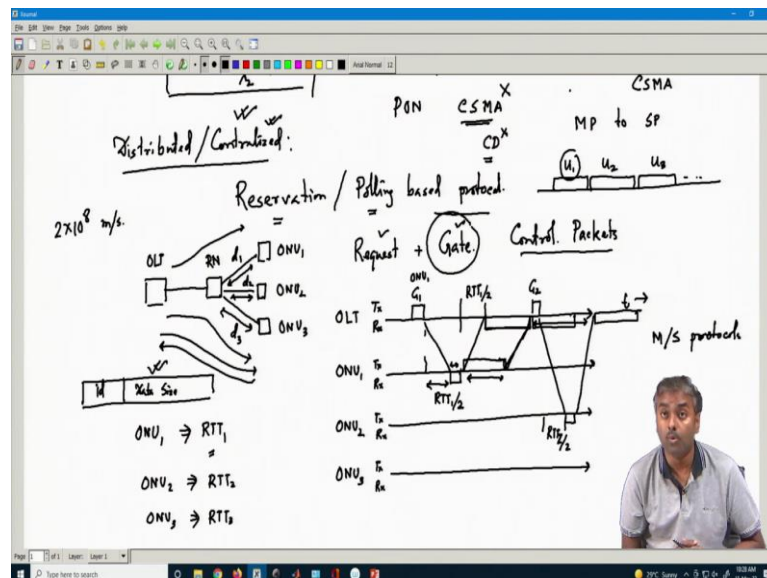 Xournal
File Edit View Page Tools Options Help
Arial Normal 12
r2
PON CSMA X
CD X
CSMA
MP to SP
U1 U2 U3 ...
Distributed / Centralized :
Reservation / Polling based protocol.
2×10^8 m/s.
Request + Gate. Control Packets
OLT RN ONU1
d1
d2 ONU2
d3 ONU3
Id Data Size
ONU1 ⇒ RTT1
ONU2 ⇒ RTT2
ONU3 ⇒ RTT3
ONU1
G1 RTT1/2 G2
OLT Tx
Rx
t →
M/S protocols
ONU1 Tx
Rx
RTT1/2
ONU2 Tx
Rx
RTT2/2
ONU3 Tx
Rx
Page 1 of 1 Layer: Layer 1
Type here to search
29°C Sunny
10:28 AM